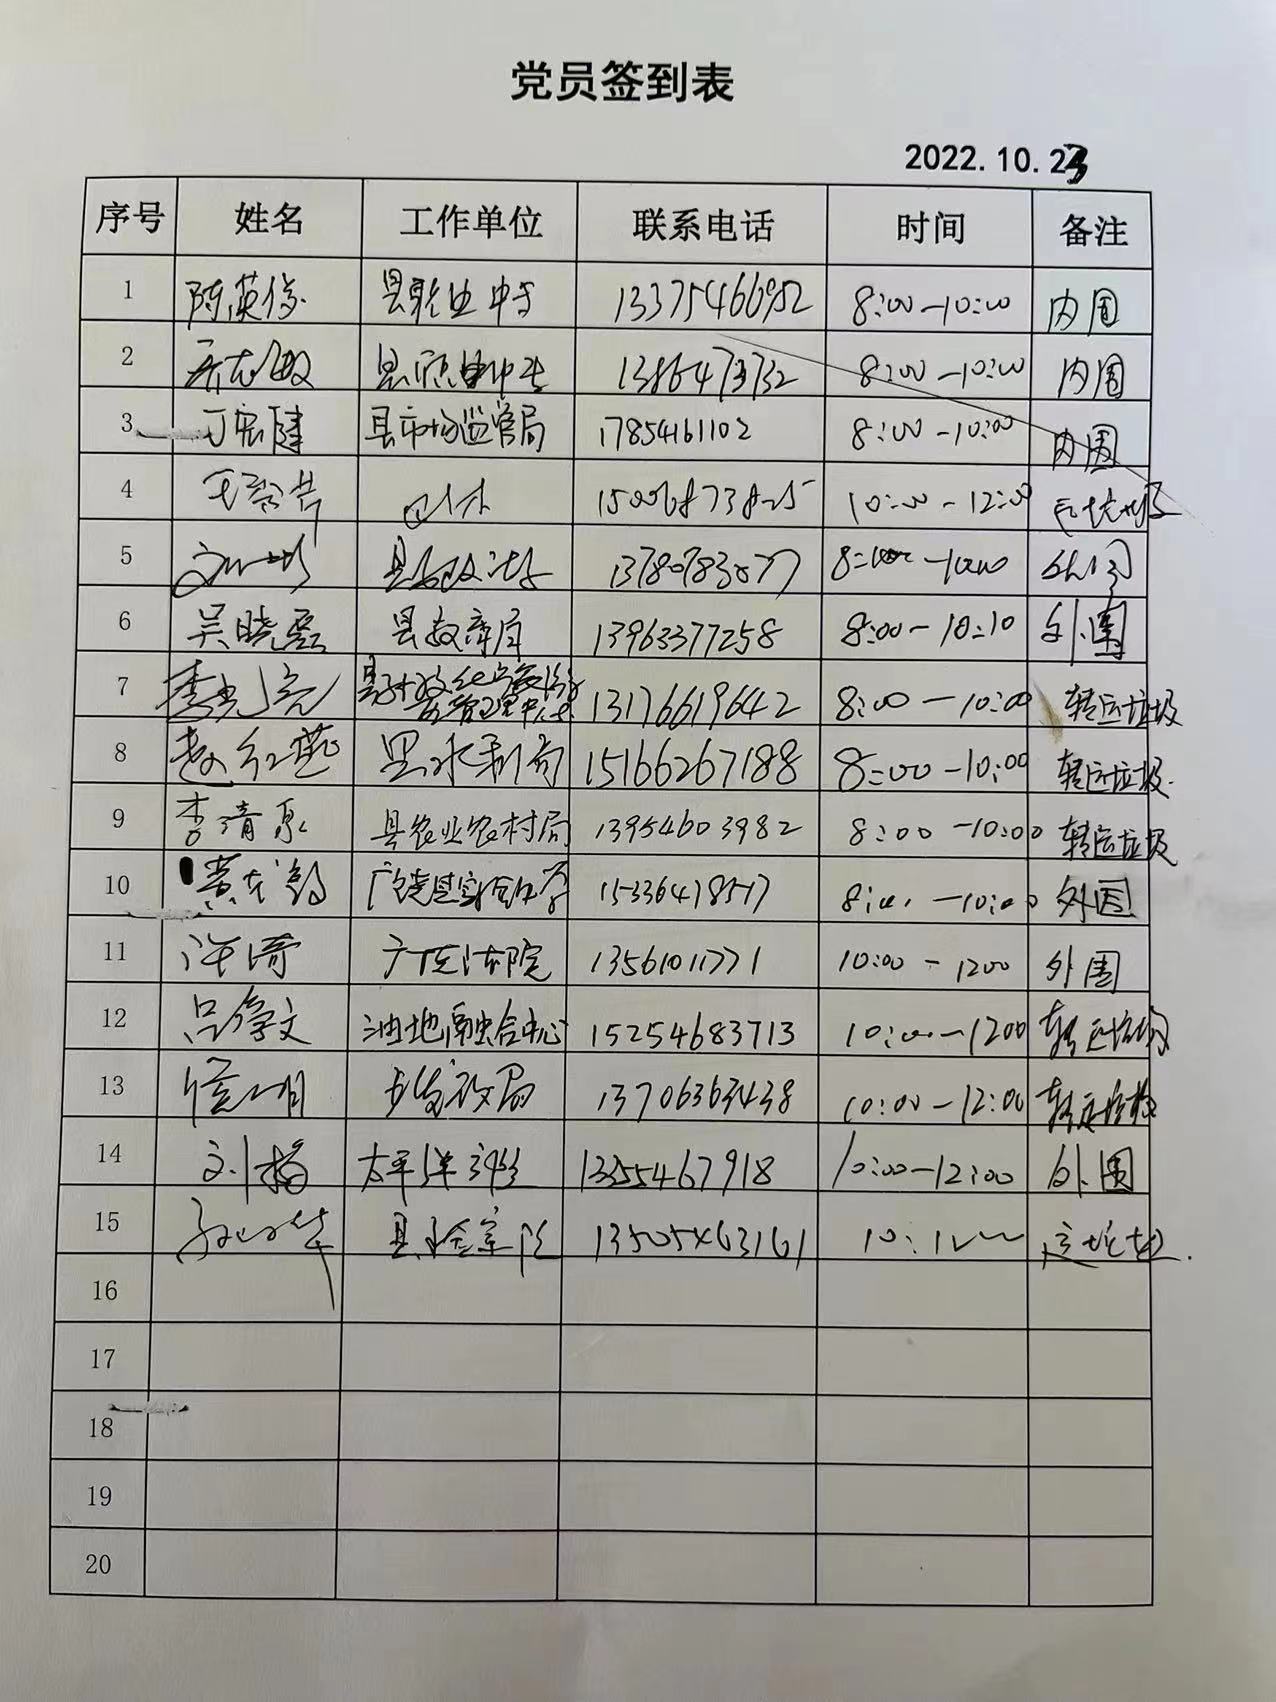 党员签到表
2022.10.23
序号 姓名 工作单位 联系电话 时间 备注
1 陈英俊 县职业中专 13375466952 8:00-10:00 内围
2 县职业中专 1386473732 8:00-10:00 内围
3 丁宏健 县市场监管局 17854161102 8:00-10:00 内围
4 10:00-12:00
5 县 外围
6 吴晓磊 县教育局 13963377258 8:00-10:10 外围
7 李 13176619642 8:00-10:00 转运垃圾
8 赵红燕 县水利局 15166267188 8:00-10:00 转运垃圾.
9 李清泉 县农业农村局 13954603982 8:00-10:00 转运垃圾
10 黄 广饶县实验中学 15336478517 外围
11 许涛 广饶法院 13561011771 10:00-1200 外围
12 吕 油地融合中心 15254683713 10:00-1200 转运垃圾
13 发改局 13706363438 10:00-12:00 转运垃圾
14 刘梅 太平洋 13255467918 10:00-12:00 外围
15 县检察院 13505463161
16
17
18
19
20